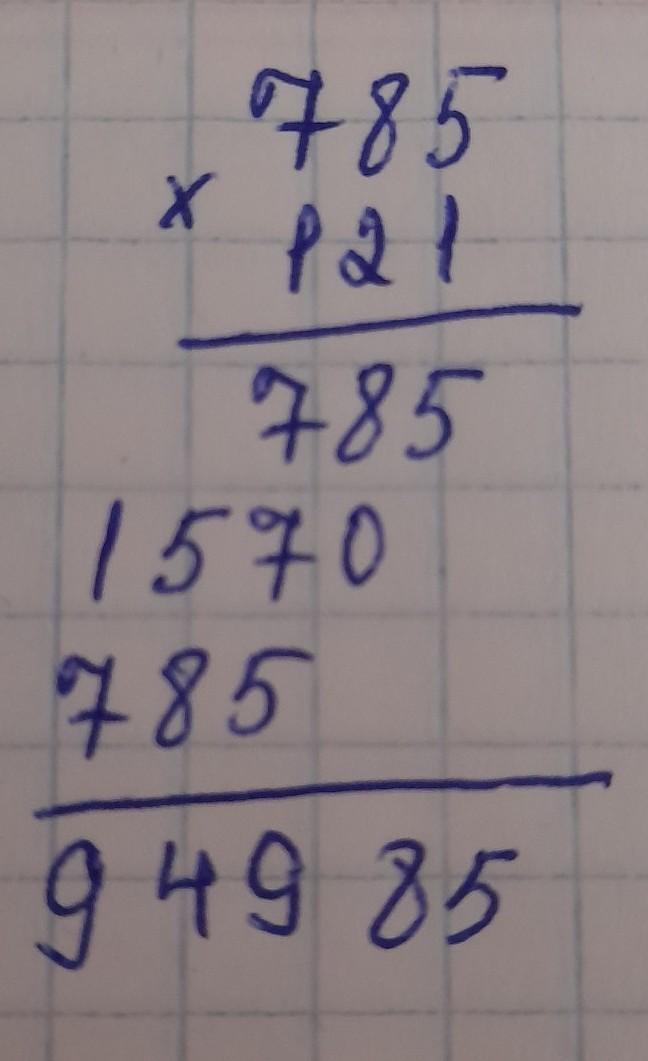 785
x
121
785
1570
785
94985